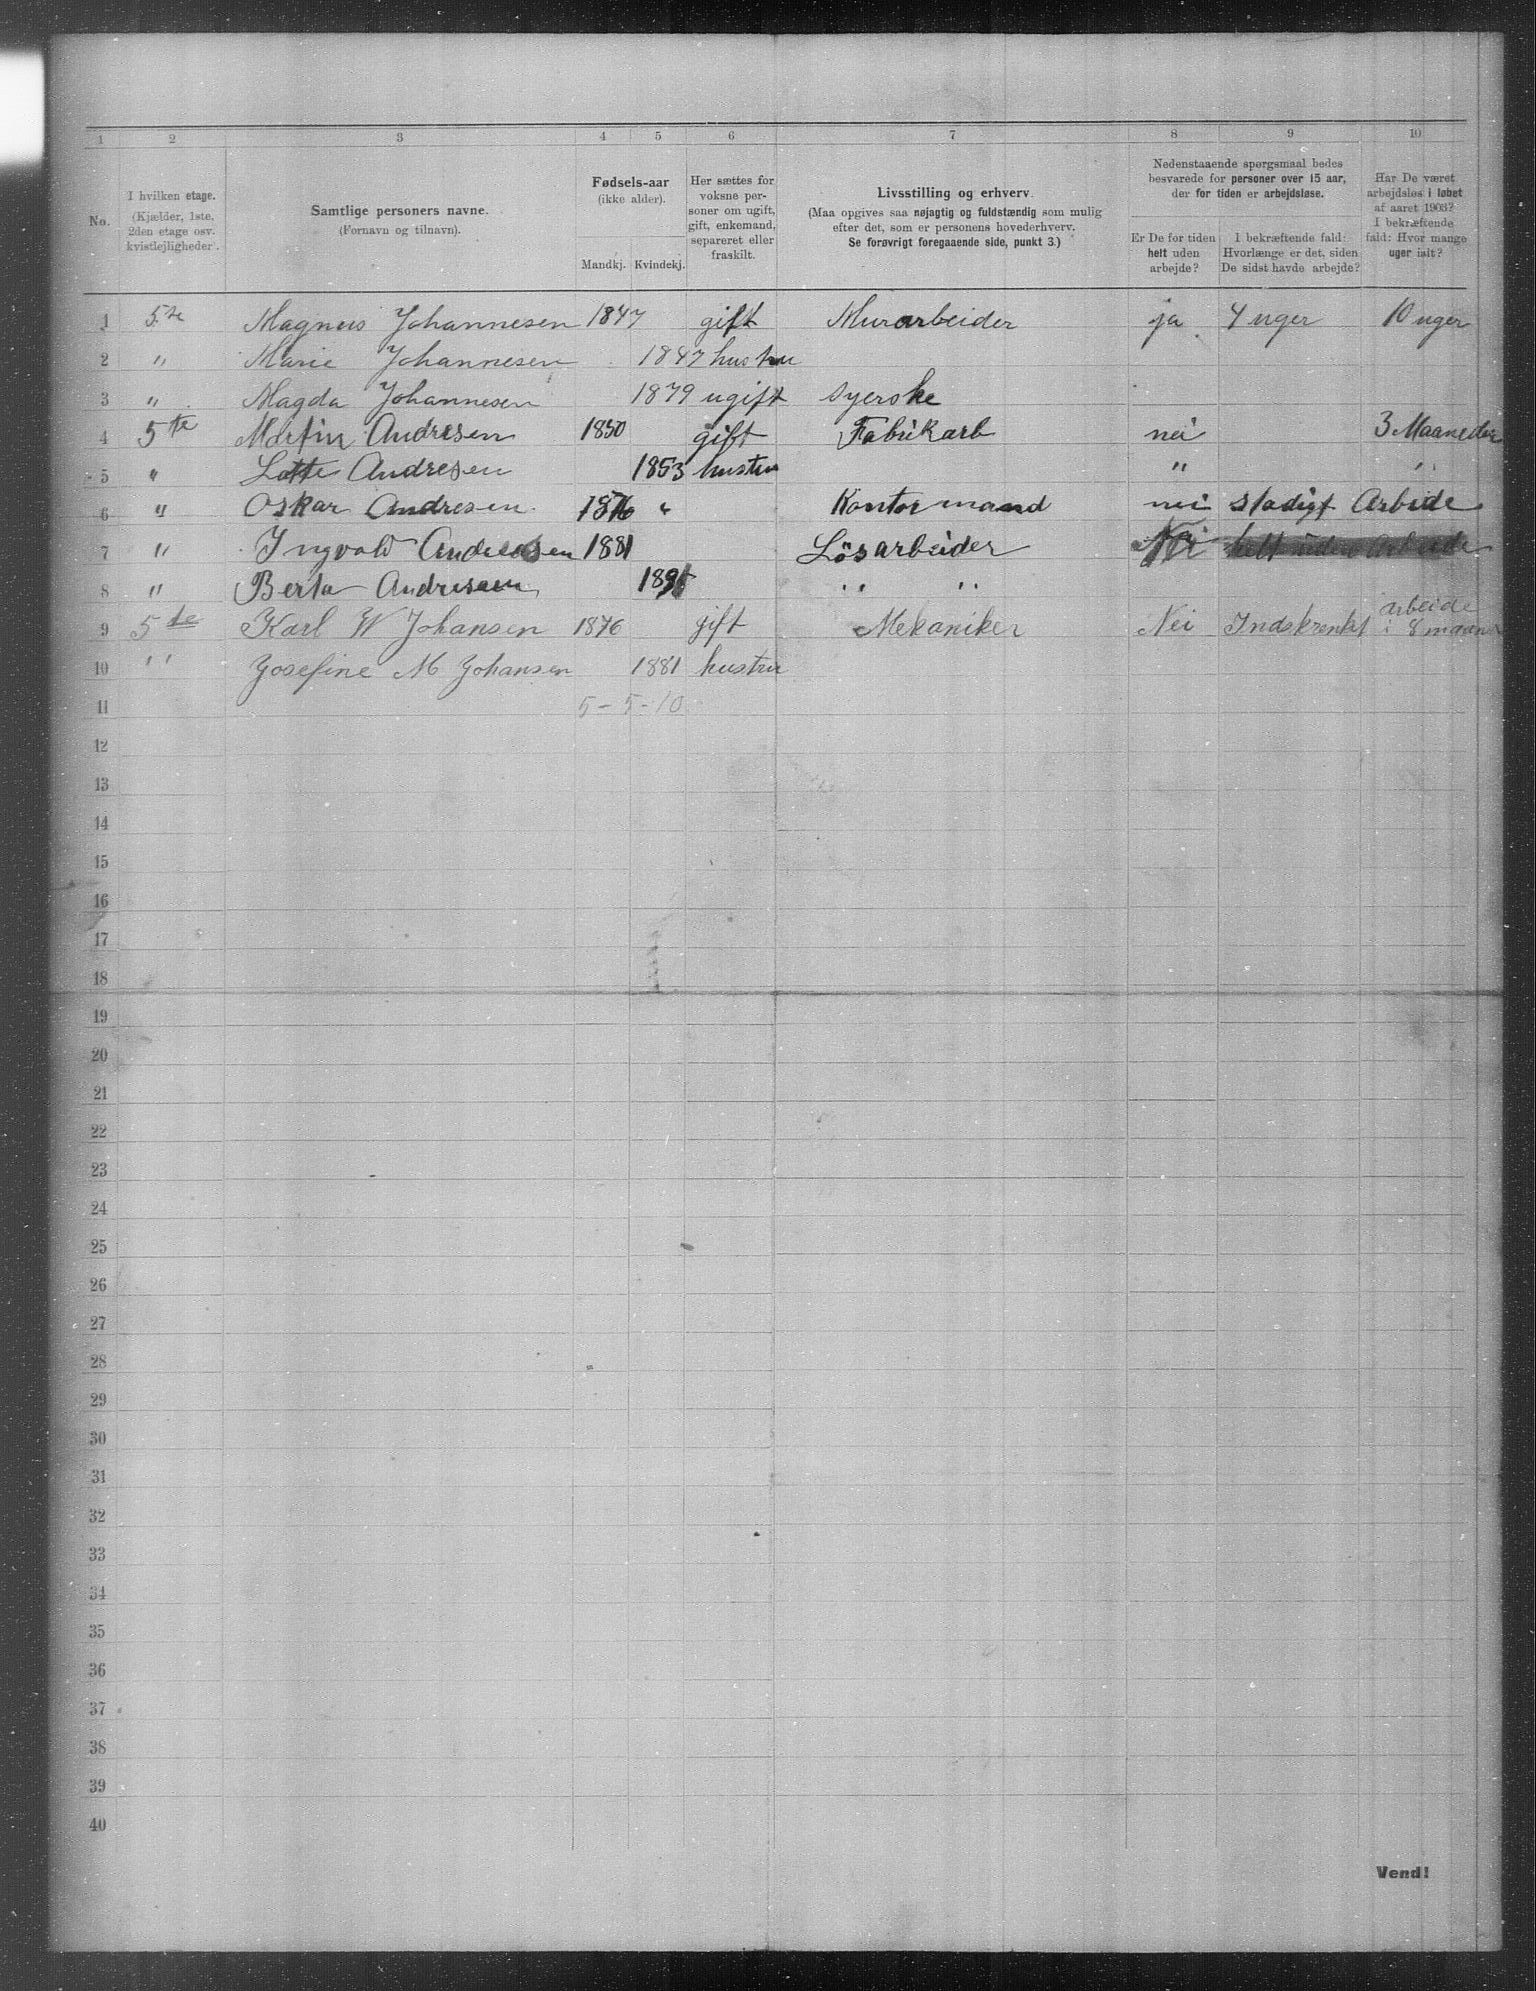 1 2 3 4 5 6 7 8 9 10
No.
I hvilken etage.
(Kjælder, 1ste,
2den etage osv.
kvistlejligheder).
Samtlige personers navne.
(Fornavn og tilnavn).
Fødsels-aar
(ikke alder).
Mandkj. Kvindekj.
Her sættes for
voksne per-
soner om ugift,
gift, enkemand,
separeret eller
fraskilt.
Livsstilling og erhverv.
(Maa opgives saa nøjagtig og fuldstændig som mulig
efter det, som er personens hovederhverv.
Se forøvrigt foregaaende side, punkt 3.)
Nedenstaaende spørgsmaal bedes
besvarede for personer over 15 aar,
der for tiden er arbejdsløse.
Er De for tiden
helt uden
arbejde?
I bekræftende fald:
Hvorlænge er det, siden
De sidst havde arbejde?
Har De været
arbejdsløs i løbet
af aaret 1903?
I bekræftende
fald: Hvor mange
uger ialt?
1 5te Magnus Johannesen 1847 gift Murarbeider ja 4 uger 10 uger
2 " Marie Johannesen 1847 hustru
3 " Magda Johannesen 1879 ugift syerske
4 5te Martin Andresen 1850 gift Fabrikarb nei 3 Maaneder
5 " Lotte Andresen 1853 hustru " "
6 " Oskar Andresen 1876 " Kontormand nei stadigt Arbede
7 " Ingvald Andresen 1881 Lösarbeider Nei helt uden Arbeide
8 " Berta Andresen " "
9 5te Karl W Johansen 1876 gift Mekaniker Nei Indskrenket arbeide
i 8 maaner
10 " Josefine M Johansen 1881 hustru
11 5-5-10
12
13
14
15
16
17
18
19
20
21
22
23
24
25
26
27
28
29
30
31
32
33
34
35
36
37
38
39
40
Vend!